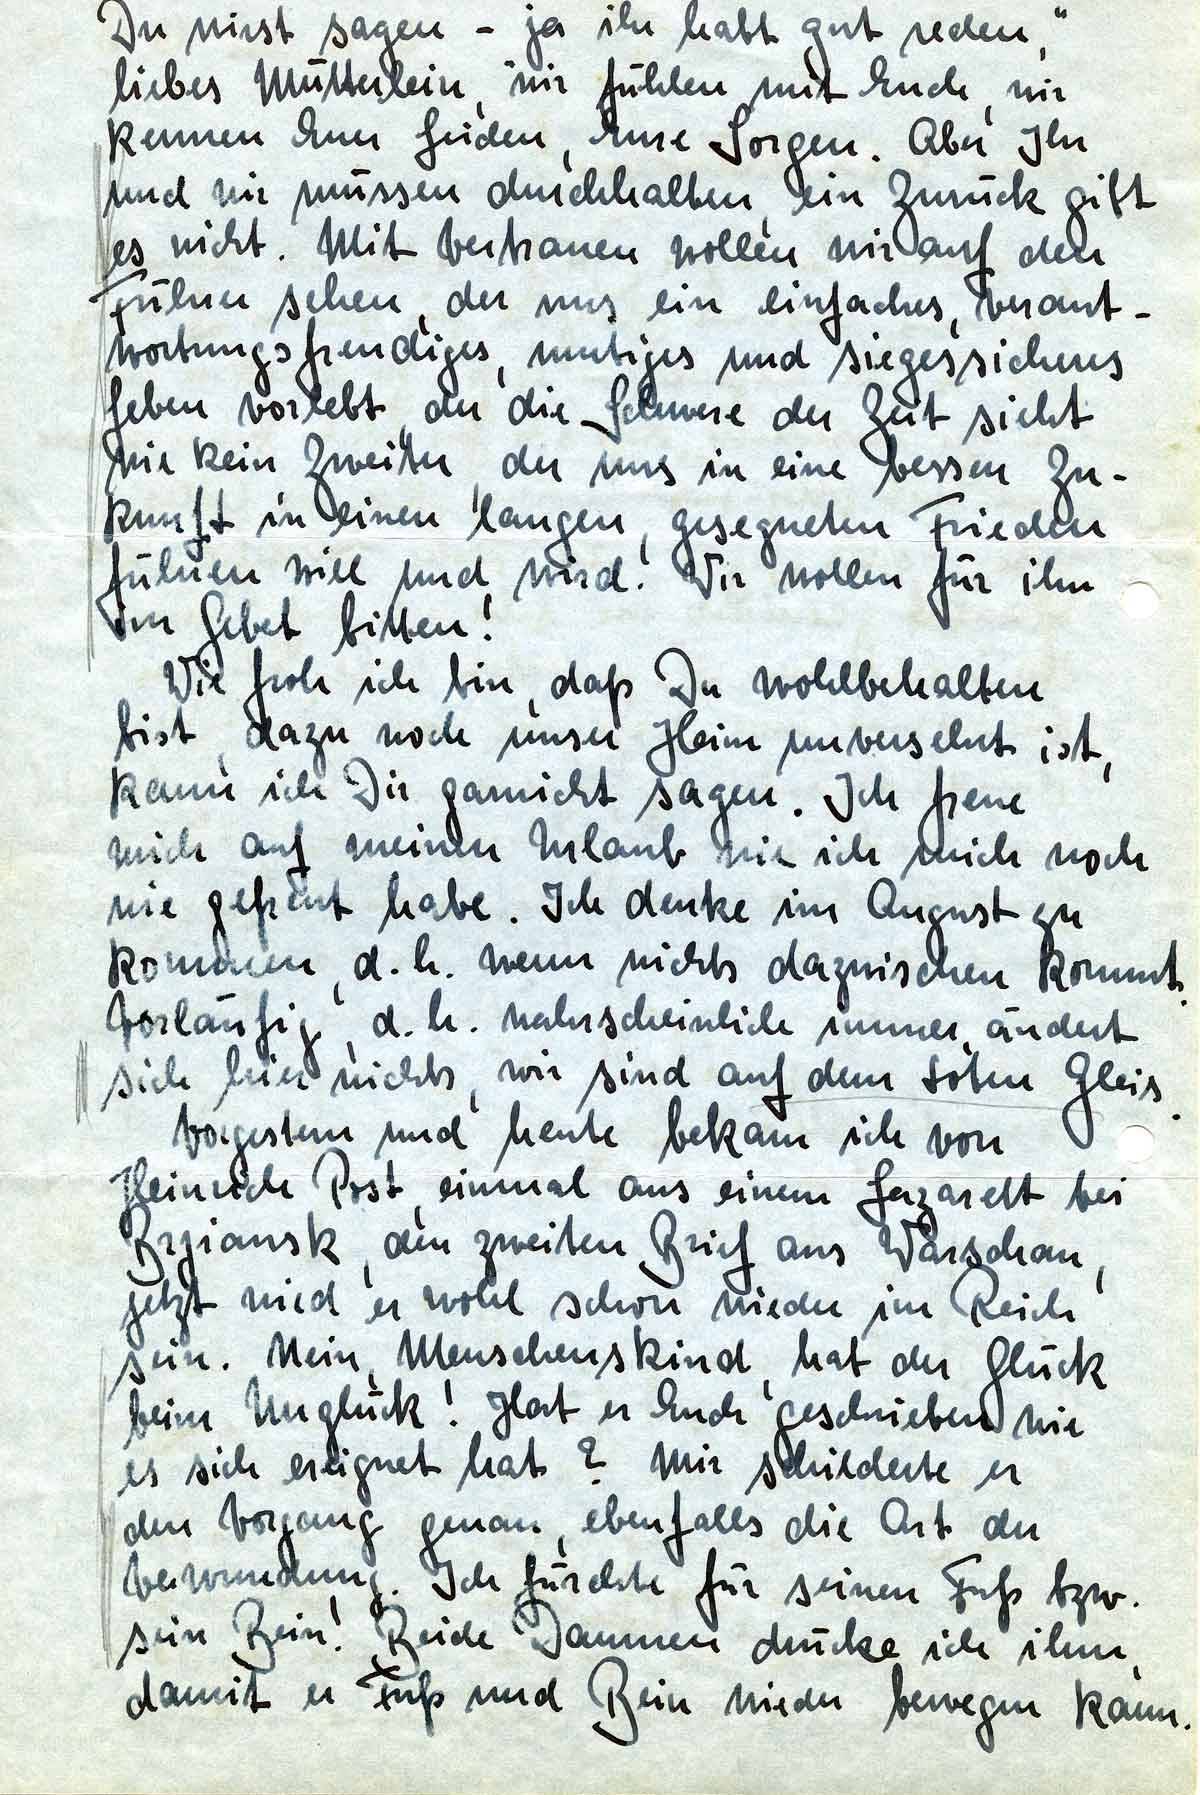 Du wirst sagen - ja ihr habt gut reden,"
liebes Mütterlein, wir fühlen mit Euch, wir
kennen Euer Leiden, Eure Sorgen. Aber Ihr
und wir müssen durchhalten, ein Zurück gibt
es nicht. Mit Vertrauen wollen wir auf den
Führer sehen, der uns ein einfaches, verant-
wortungsfreudiges, mutiges und siegessicheres
Leben vorlebt, der die Schwere der Zeit sieht
wie kein Zweiter, der uns in eine bessere Zu-
kunft in einen langen, gesegneten Frieden
führen will und wird! Wir wollen für ihn
im Gebet bitten!
Wie froh ich bin, daß Du wohlbehalten
bist, dazu noch unser Heim unversehrt ist,
kann ich Dir garnicht sagen. Ich freue
mich auf meinen Urlaub wie ich mich noch
nie gefreut habe. Ich denke im August zu
kommen, d.h. wenn nichts dazwischen kommt.
Vorläufig, d.h. wahrscheinlich immer, ändert
sich hier nichts, wir sind auf dem toten Gleis.
Vorgestern und heute bekam ich von
Heinrich Post, einmal aus einem Lazarett bei
Brjansk, den zweiten Brief aus Warschau,
jetzt wird er wohl schon wieder im Reich
sein. Nein, Menschenskind, hat der Glück
beim Unglück! Hat er Euch geschrieben wie
es sich ereignet hat? Mir schilderte er
den Vorgang genau, ebenfalls die Art der
Verwundung. Ich fürchte für seinen Fuß bzw.
sein Bein! Beide Daumen drücke ich ihm,
damit er Fuß und Bein wieder bewegen kann.